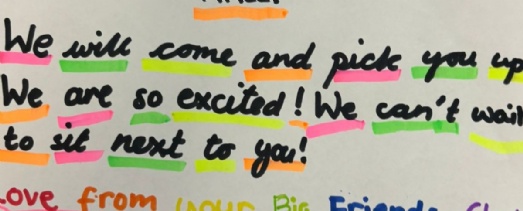 We will come and pick you up
We are so excited! We can't wait
to sit next to you!
Love from your Big Friends